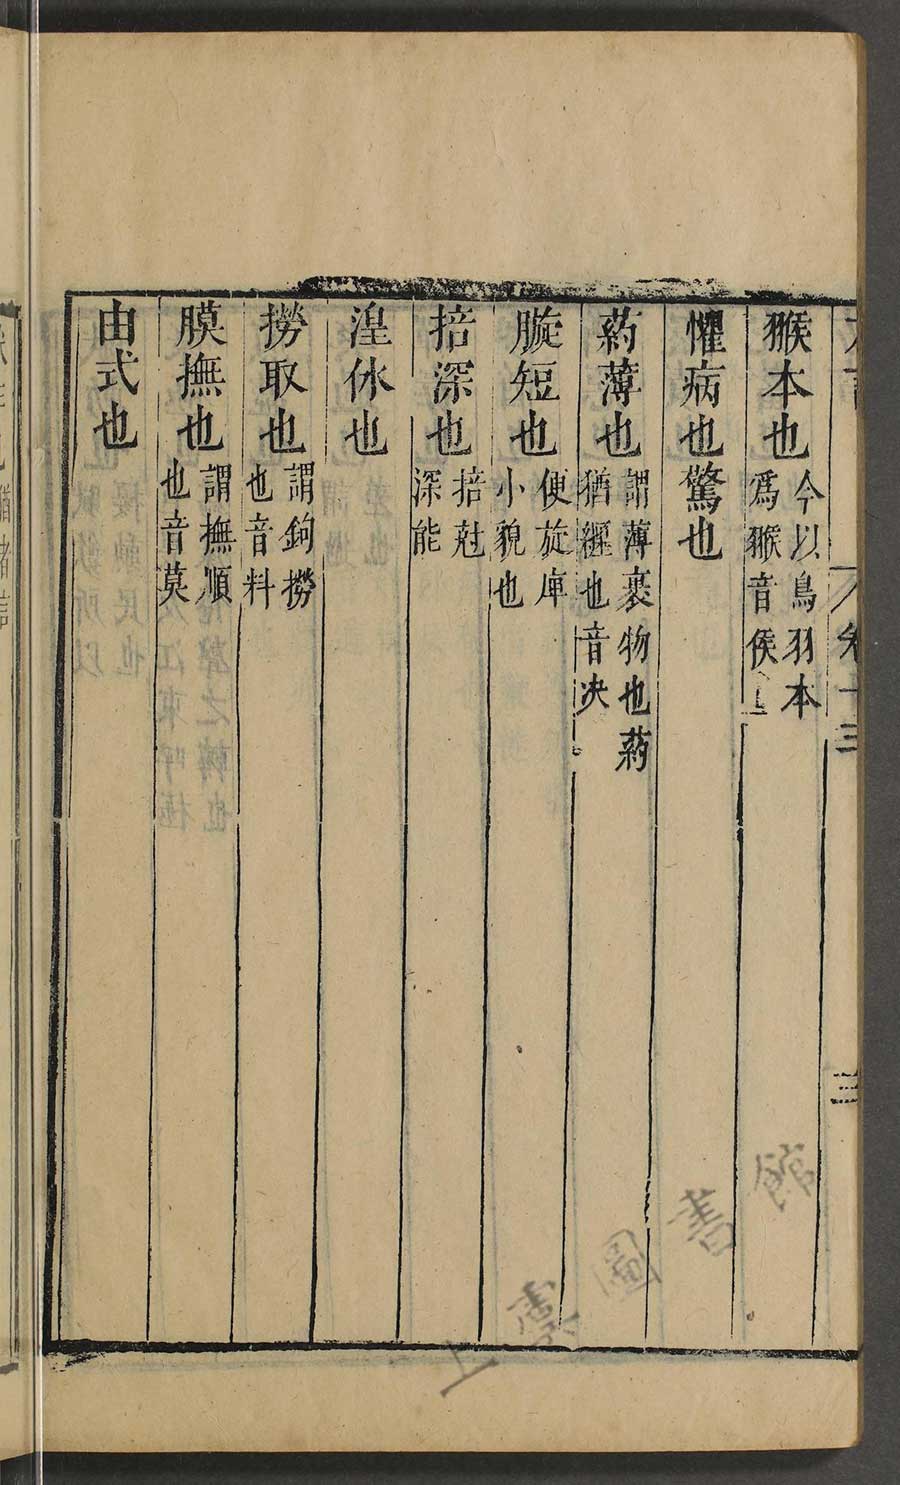 猴本也今以鳥羽本爲猴音侯
懼病也驚也
葯薄也謂薄裹物也葯猶纏也音决
䐅短也便旋庳小貌也
掊深也掊尅深能
湟休也
撈取也謂鉤撈也音料
膜撫也謂撫順也音莫
由式也
卷十三
三
上虞圖書館